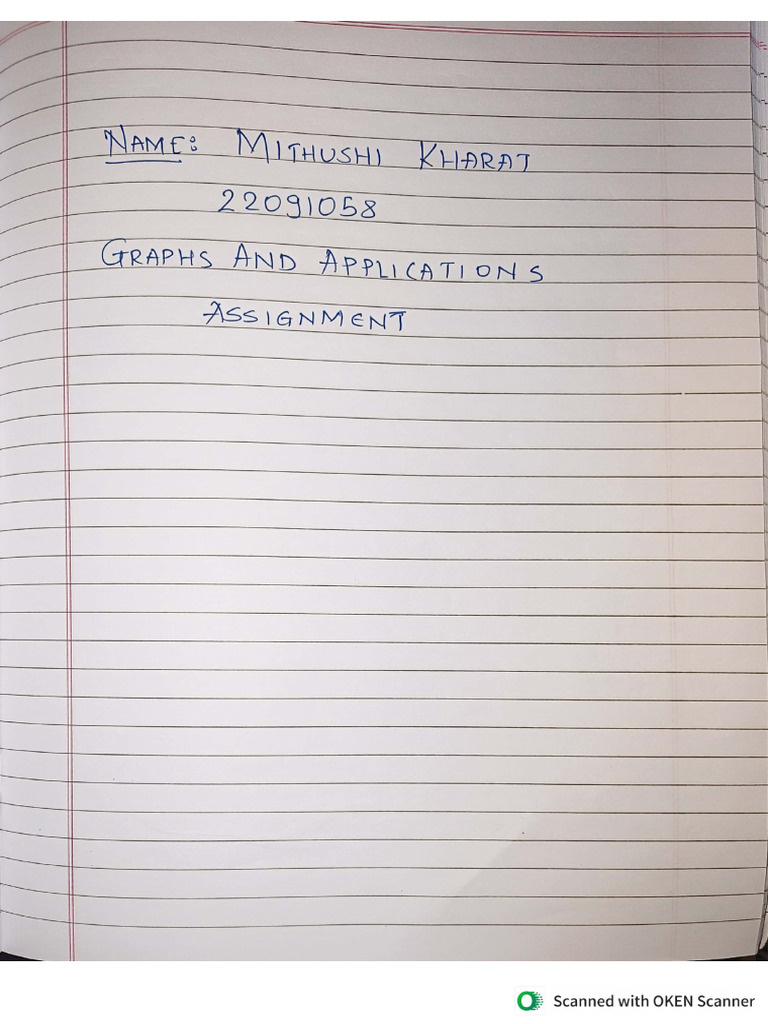 NAME: MITHUSHI KHARAT
22091058
GRAPHS AND APPLICATIONS
ASSIGNMENT
Scanned with OKEN Scanner